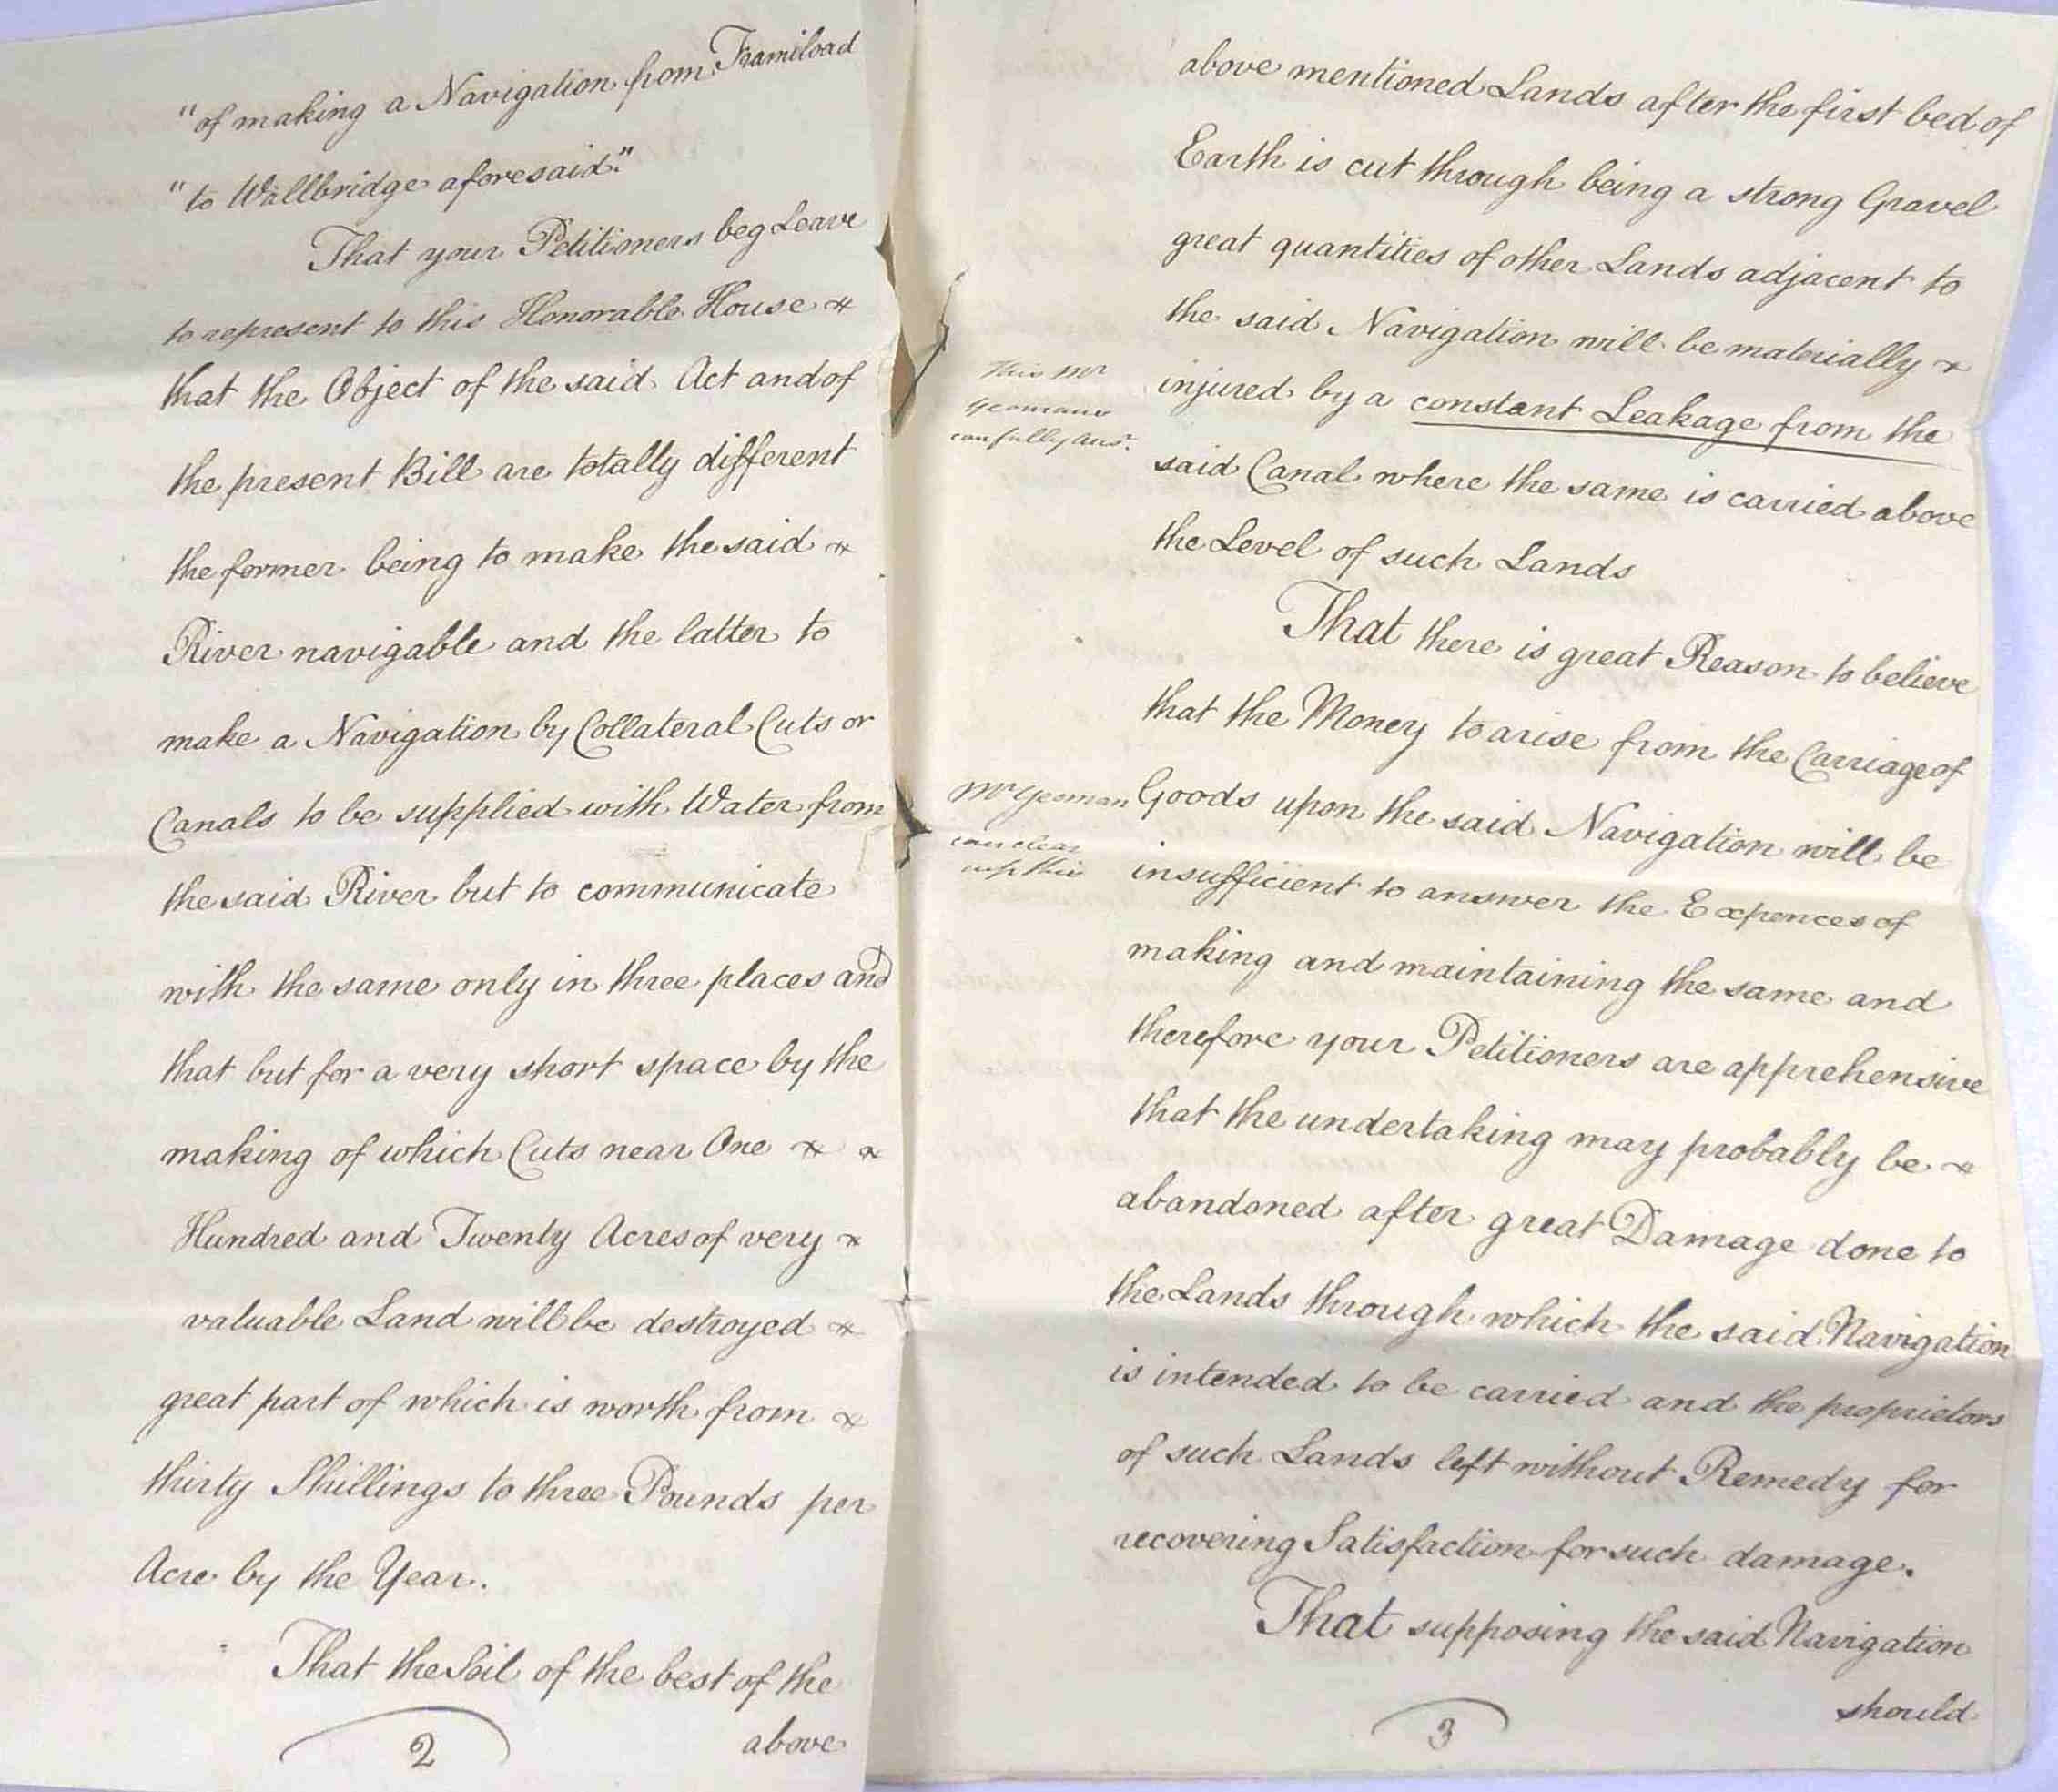 "of making a Navigation from Framiload
"to Wallbridge aforesaid."
That your Petitioners beg Leave
to represent to this Honorable House
that the Object of the said Act and of
the present Bill are totally different
the former being to make the said
River navigable and the latter to
make a Navigation by Collateral Cuts or
Canals to be supplied with Water from
the said River but to communicate
with the same only in three places and
that but for a very short space by the
making of which Cuts near One
Hundred and Twenty Acres of very
valuable Land will be destroyed
great part of which is worth from
thirty Shillings to three Pounds per
Acre by the Year.
That the Soil of the best of the
above
2
above mentioned Lands after the first bed of
Earth is cut through being a strong Gravel
great quantities of other Lands adjacent to
the said Navigation will be materially
injured by a constant Leakage from the
said Canal where the same is carried above
the Level of such Lands
This Mr
Yeomans
can fully Ansr.
That there is great Reason to believe
that the Money to arise from the Carriage of
Goods upon the said Navigation will be
insufficient to answer the Expences of
making and maintaining the same and
therefore your Petitioners are apprehensive
that the undertaking may probably be
abandoned after great Damage done to
the Lands through which the said Navigation
is intended to be carried and the proprietors
of such Lands left without Remedy for
recovering Satisfaction for such damage.
Mr Yeoman
can clear
up this
That supposing the said Navigation
should
3